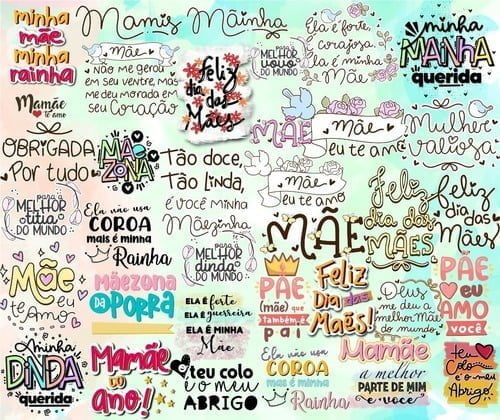 minha
mãe
minha
rainha
Mamis
Mãinha
Mãe
Não me gerou
em seu ventre, mas
me deu morada em
seu Coração
Feliz
dia das
Mães
MELHOR
vovó
DO MUNDO
Ela é forte
corajosa,
ela é minha
Mãe
minha
MAINHA
querida
Mamãe
te amo
OBRIGADA
Por tudo
MÃE
ZONA
Tão doce,
Tão linda,
É VOCÊ MINHA
Mãezinha
MÃE
Mãe
eu te amo
Mãe
eu te amo
Mulher
valiosa
para a
MELHOR
titia
DO MUNDO
Ela não usa
COROA
mais é minha
Rainha
para a
MELHOR
dinda
DO MUNDO
MÃE
Feliz
dia das
MÃES
Feliz
dia das
Mães
Mãe
eu te
Amo
MÃEZONA
DA
PORRA
ELA É forte
ELA É guerreira
ELA É MINHA
Mãe
PÃE
(mãe) que
Também é
PAI
Feliz
Dia das
Mães!
Deus,
me deu a
melhor Mãe
do mundo
PÃE
EU
AMO
VOCÊ
minha
DINDA
querida
Mamãe
te
amo!
teu colo
é o meu
ABRIGO
Ela não usa
COROA
mas é minha
Rainha
Mamãe
a melhor
PARTE DE MIM
é você
teu
Colo
é o meu
Abrigo